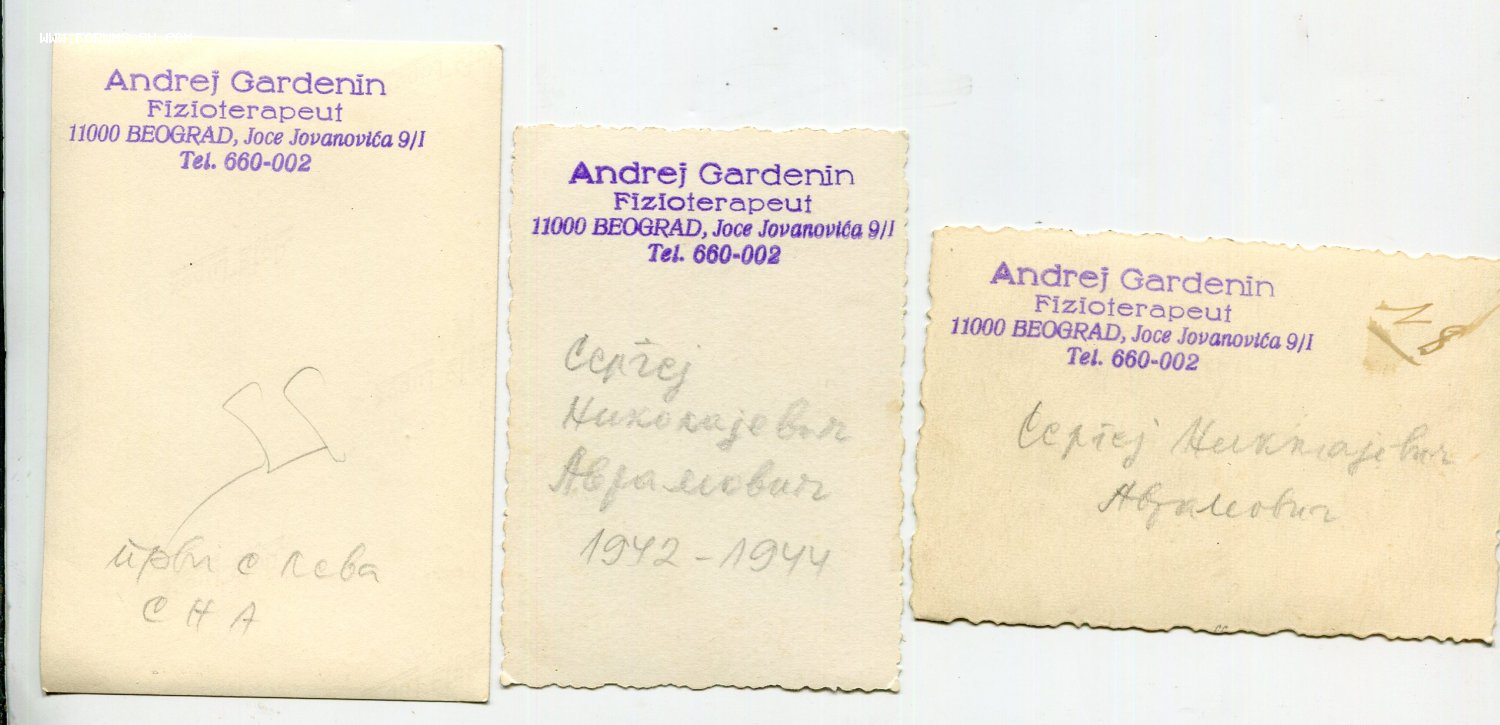 Andrej Gardenin
Fizioterapeut
11000 BEOGRAD, Joce Jovanovića 9/I
Tel. 660-002
први с лева
С Н А
Andrej Gardenin
Fizioterapeut
11000 BEOGRAD, Joce Jovanovića 9/I
Tel. 660-002
Сергеј
Николајевич
Аврамович
1942 - 1944
Andrej Gardenin
Fizioterapeut
11000 BEOGRAD, Joce Jovanovića 9/I
Tel. 660-002
Сергеј Николајевич
Аврамович